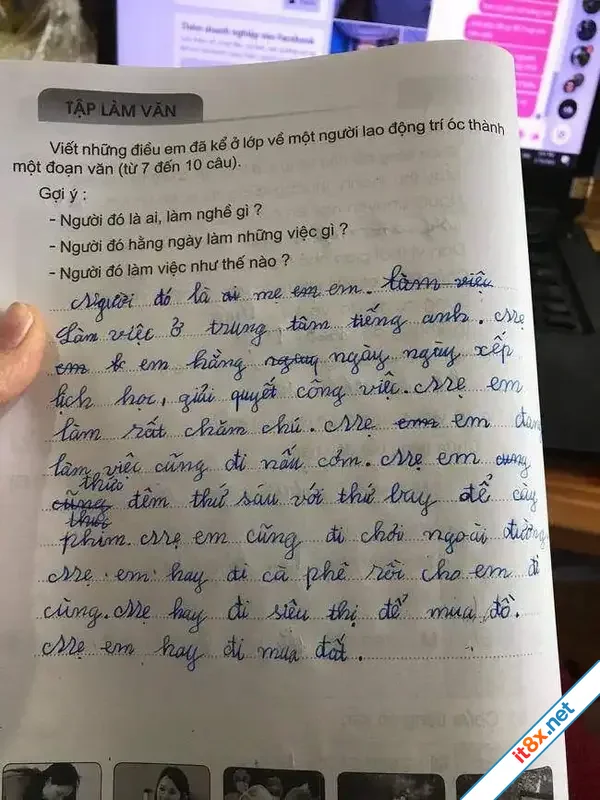 TẬP LÀM VĂN
Viết những điều em đã kể ở lớp về một người lao động trí óc thành
một đoạn văn (từ 7 đến 10 câu).
Gợi ý :
- Người đó là ai, làm nghề gì ?
- Người đó hằng ngày làm những việc gì ?
- Người đó làm việc như thế nào ?
Người đó là ai mẹ em em. làm việc
Làm việc ở trung tâm tiếng anh. Mẹ
em em hằng ngày ngày xếp
lịch học, giải quyết công việc. Mẹ em
làm rất chăm chú. Mẹ em em đang
làm việc cũng đi nấu cơm. Mẹ em cung
thức
cũng đêm thứ sáu với thứ bay để cày
thức
phim. Mẹ em cũng đi chơi ngoài đường
Mẹ em hay đi cà phê rồi cho em đi
cùng. Mẹ hay đi siêu thị để mua đồ.
Mẹ em hay đi mua đất.
it8x.net